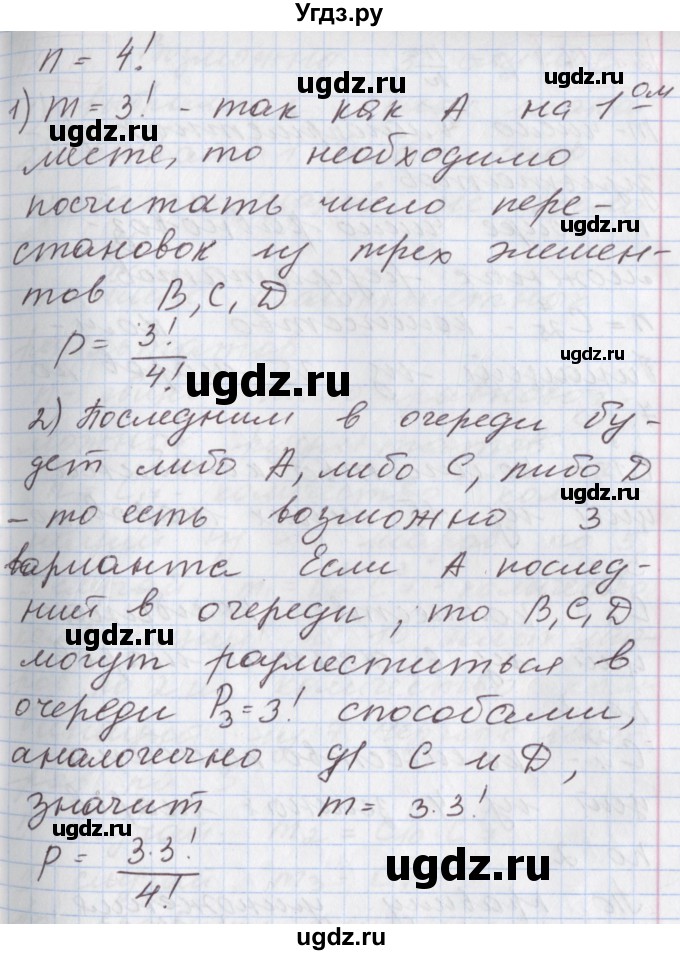 Угдз.ру
n = 4!
1) m = 3! - так как A на 1 ом
месте, то необходимо
посчитать число пере-
становок из трех элемен-
тов B, C, D
p = 3!/4!
2) Последним в очереди бу-
дет либо A, либо C, либо D
- то есть возможно 3
варианта Если A послед-
ний в очереди, то B, C, D
могут разместиться в
очереди P₃ = 3! способами,
аналогично дл C и D,
значит m = 3·3!
p = 3·3!/4!
ugdz.ru
ugdz.ru
ugdz.ru
ugdz.ru
ugdz.ru
ugdz.ru
ugdz.ru
ugdz.ru
ugdz.ru
ugdz.ru
ugdz.ru
ugdz.ru
ugdz.ru